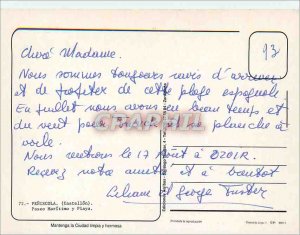 93
Cheré Madame.
Nous sommes toujours ravis d'arriver
et de profiter de cette plage espagnole
En juillet nous avons eu beau temps et
du vent pour planche à
voile.
Nous rentrons le 17 Août à
Recevez notre amitié et à bientôt
Liliane et George
72.- PEÑISCOLA. (Castellón).
Paseo Marítimo y Playa.
Mantenga la Ciudad limpia y hermosa
Prohibida la reproducción